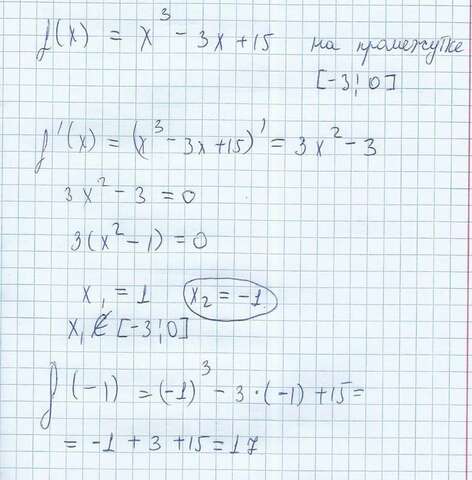 f(x) = x³ - 3x + 15 на промежутке
[-3; 0]
f'(x) = (x³ - 3x + 15)' = 3x² - 3
3x² - 3 = 0
3(x² - 1) = 0
x₁ = 1 x₂ = -1
x₁ ∉ [-3; 0]
f(-1) = (-1)³ - 3·(-1) + 15 =
= -1 + 3 + 15 = 17